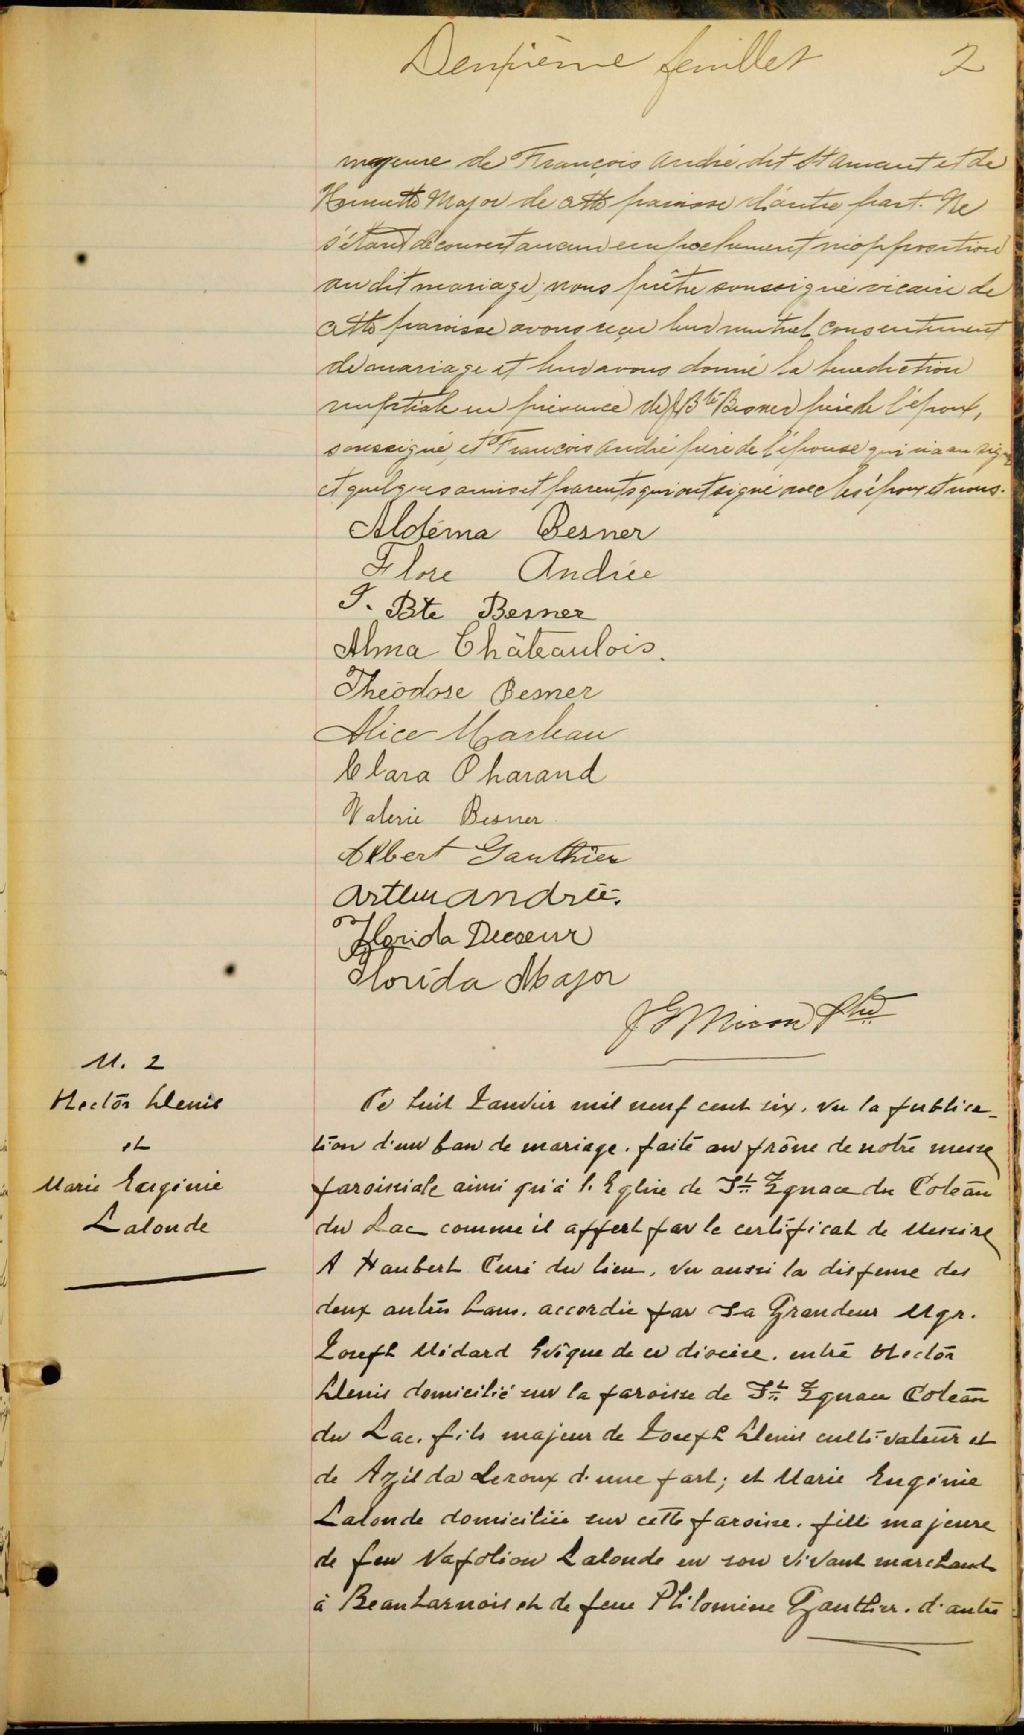 Deuxième feuillet 2
majeure de François André dit St Amant et de
Major de cette paroisse d'autre part. Ne
s'étant découvert aucun empêchement ni opposition
au dit mariage; nous prêtre soussigné vicaire de
cette paroisse avons reçu leur mutuel consentement
de mariage et leur avons donné la benediction
nuptiale en présence de J Bte Besner père de l'époux,
soussigné, et François André père de l'épouse qui n'a su signer
et quelques amis et parents qui ont signé avec les époux et nous.
Aldéma Besner
Flore Andrée
J. Bte Besner
Alma Châteaulois.
Théodose Besner
Alice Marleau
Clara Pharand
Valerie Besner
Albert Gauthier
Andrée.
Florida Decoeur
Florida Major
Ptre
M. 2
Hector Denis
et
Marie Eugénie
Lalonde
Ce huit Janvier mil neuf cent six, vu la publica-
tion d'un ban de mariage, faite au prône de notre messe
paroissiale ainsi qu'à l'Eglise de St Ignace du Coteau
du Lac comme il appert par le certificat de Messire
A Haubert Curé du lieu, vu aussi la dispense des
deux autres bans, accordée par Sa Grandeur Mgr.
Joseph Médard Evêque de ce diocèse, entre Hector
Denis domicilié sur la paroisse de St Ignace Coteau
du Lac, fils majeur de Joseph Denis cultivateur et
de Azilda Leroux d'une part; et Marie Eugénie
Lalonde domiciliée sur cette paroisse, fille majeure
de feu Napoléon Lalonde en son vivant marchand
à Beauharnois et de feue Philomène Gauthier, d'autre